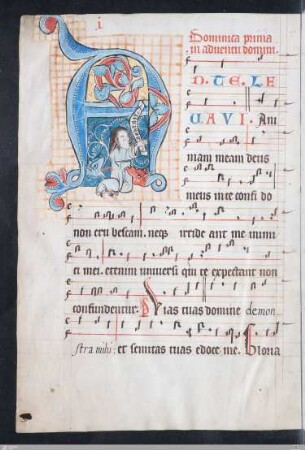 i
Dominica prima
in adventu domini.
D. TE. LE
VAVI. Ani
mam meam deus
meus in te confi do
non eru bescam. neqз irride ant me inimi
ci mei. etenim universi qui te expectant non
confundentur. Vias tuas domine demon
stra mihi: et semitas tuas edoce me. Gloria